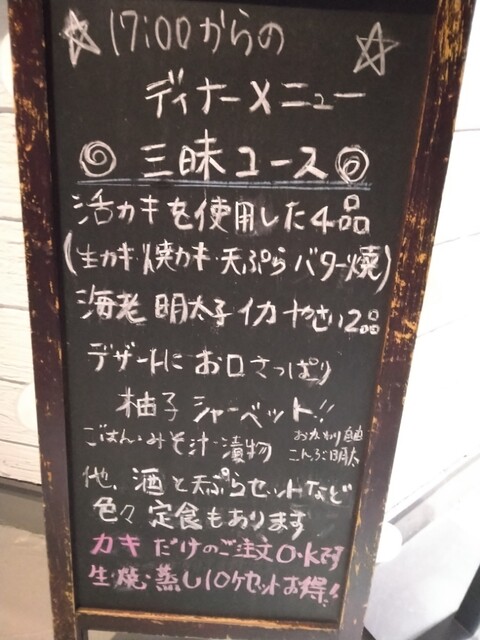 ☆17:00からの☆
ディナーメニュー
◎三昧コース◎
活カキを使用した4品
(生カキ・焼カキ・天ぷら バター焼)
海老 明太子 イカ やさい2品
デザートに お口さっぱり
柚子シャーベット!!
ごはん・みそ汁・漬物 おかわり自由
こんぶ明太
他、酒と天ぷらセットなど
色々定食もあります
カキ だけのご注文O・Kです
生・焼・蒸し10ケセットお得!